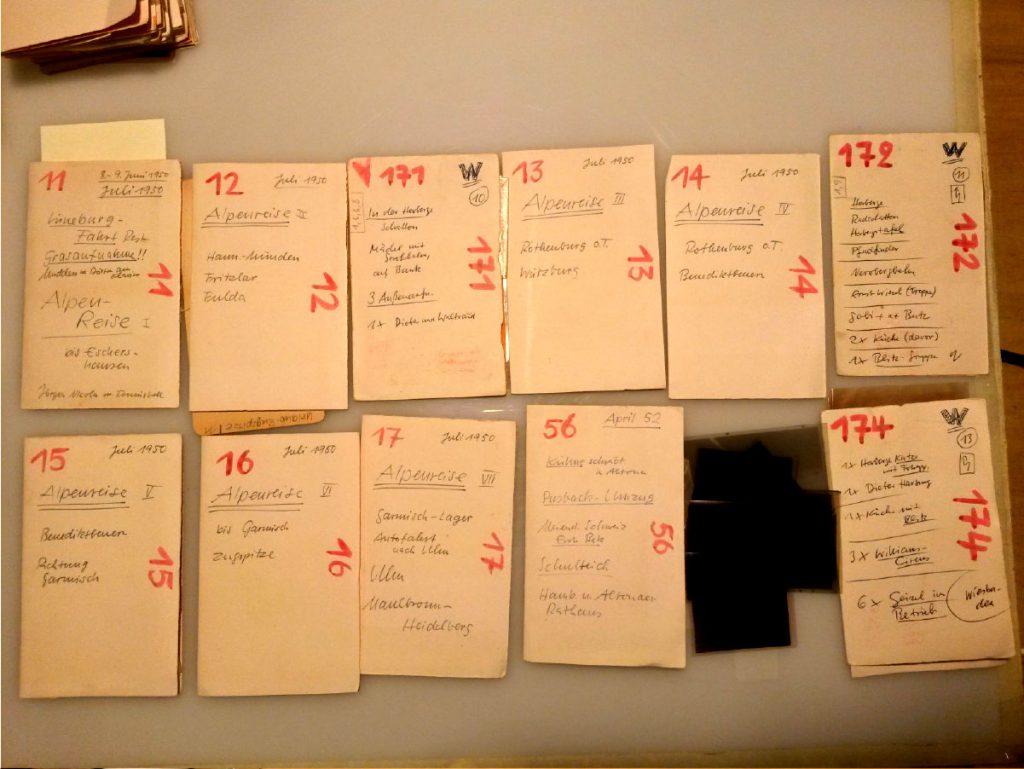 11
8.-9. Juni 1950
Juli 1950
Lüneburg-
Fahrt Rest
Grasaufnahme!!
Alpen-
Reise I
bis Eschers-
hausen
11
12
Juli 1950
Alpenreise II
Hann.-Münden
Fritzlar
Fulda
12
171
W
10
In der Herberge
auf Bank
3 Außenaufn.
1x Dieter und Waltraud
171
13
Juli 1950
Alpenreise III
Rothenburg o.T.
Würzburg
13
14
Juli 1950
Alpenreise IV
Rothenburg o.T.
Benediktbeuern
14
172
W
11
Herberge
Herbergstafel
Pfadfinder
Nerobergbahn
(Treppe)
2x Küche (davor)
1x Blitz-Gruppe
172
15
Juli 1950
Alpenreise V
Benediktbeuern
Richtung
Garmisch
15
16
Juli 1950
Alpenreise VI
bis Garmisch
Zugspitze
16
17
Juli 1950
Alpenreise VII
Garmisch-Lager
Autofahrt
nach Ulm
Ulm
Maulbronn-
Heidelberg
17
56
April 52
in Altona
Schweiz
Schulteich
Hamb. u. Altonaer
Rathaus
56
174
W
13
1x Herberge Kater
1x Dieter Hartung
1x Küche mit
Blitz
3x Williams-
Circus
6x Geisel in
Betrieb
Wiesba-
den
174